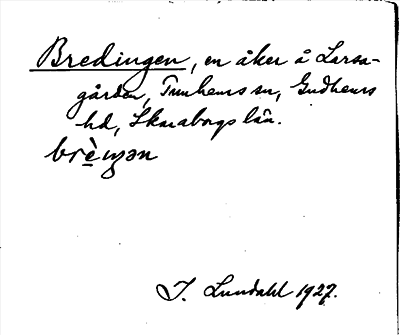 Bredingen, en åker å Larsa-
gården, Tunhems sn, Gudhems
hd, Skaraborgs län.
brèŋən
I. Lundahl 1927.